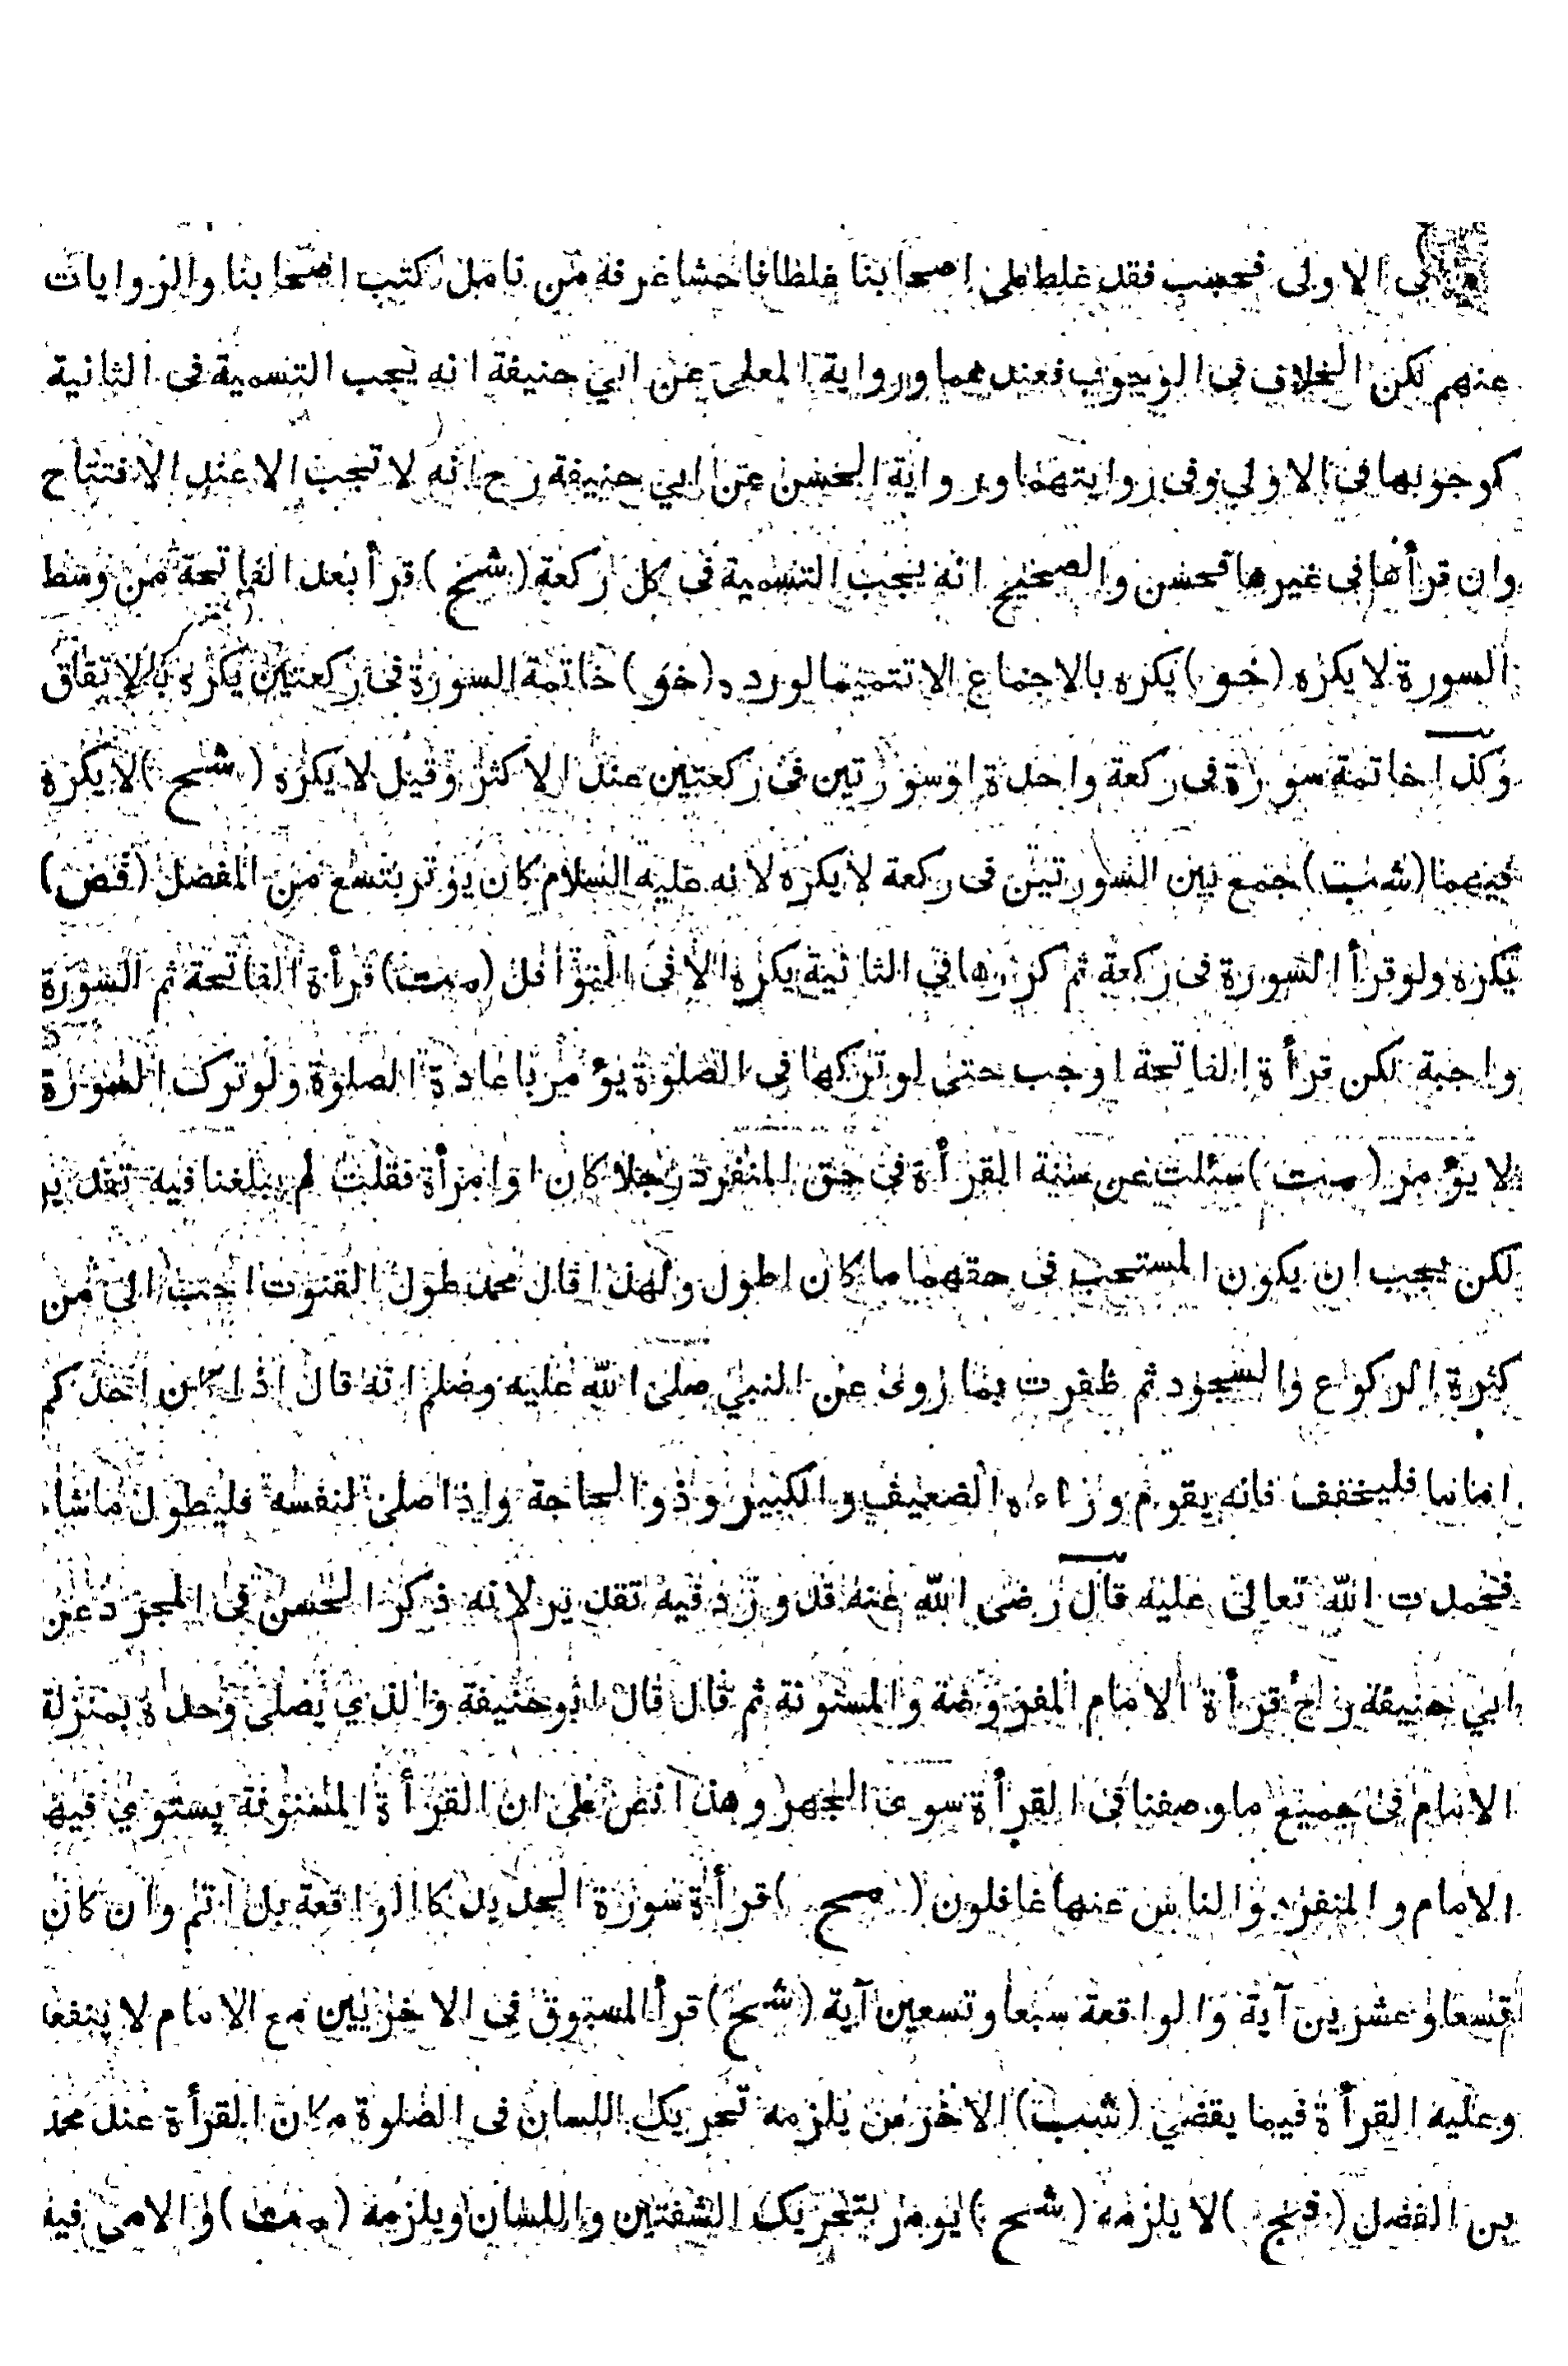 فى الاولى فحسب فقد غلط على اصحابنا غلطا فاحشا عرفه من تامل كتب اصحابنا والروايات
عنهم لكن الخلاف فى الوجوب فعندهما ورواية المعلى عن ابي حنيفة انه يجب التسمية فى الثانية
كوجوبها فى الاولي وفى روايتهما ورواية الحسن عن ابي حنيفة رح انه لا تجب الا عند الافتتاح
وان قرأها فى غيرها فحسن والصحيح انه يجب التسمية فى كل ركعة (شخ) قرأ بعد الفاتحة من وسط
السورة لا يكره (خو) يكره بالاجماع الا تتميما لورده (خو) خاتمة السورة فى ركعتين يكره بالاتفاق
وكذا خاتمة سورة فى ركعة واحدة او سورتين فى ركعتين عند الاكثر وقيل لا يكره (شح) لا يكره
فيهما (شب) جمع بين السورتين فى ركعة لا يكره لانه عليه السلام كان يوتر بتسع من المفصل (قض)
يكره ولو قرأ السورة فى ركعة ثم كررها في الثانية يكره الا فى النوافل (مت) قرأة الفاتحة ثم السورة
واجبة لكن قرأة الفاتحة اوجب حتى لو تركها فى الصلوة يؤمر باعادة الصلوة ولو ترك السورة
لا يؤمر (مت) سئلت عن سنة القرأة فى حق المنفرد رجلا كان او امرأة فقلت لم يبلغنا فيه تقدير
لكن يجب ان يكون المستحب فى حقهما ما كان اطول ولهذا قال محمد طول القنوت احب الى من
كثرة الركوع والسجود ثم ظفرت بما روى عن النبي صلى الله عليه وسلم انه قال اذا كان احدكم
اماما فليخفف فانه يقوم وراءه الضعيف والكبير وذو الحاجة واذا صلى لنفسه فليطول ما شاء
فحمدت الله تعالى عليه قال رضى الله عنه قد ورد فيه تقدير لانه ذكر الحسن فى المجرد عن
ابي حنيفة رح قرأة الامام المفروضة والمسنونة ثم قال قال ابو حنيفة والذي يصلى وحده بمنزلة
الامام فى جميع ما وصفنا فى القرأة سوى الجهر وهذا نص على ان القرأة المسنونة يستوي فيها
الامام والمنفرد والناس عنها غافلون (مح) قرأة سورة الحديد كالواقعة بل اتم وان كان
تسعا وعشرين آية والواقعة سبعا وتسعين آية (شح) قرأ المسبوق فى الاخريين مع الامام لا ينفعه
وعليه القرأة فيما يقضي (شب) الاخرس يلزمه تحريك اللسان فى الصلوة مكان القرأة عند محمد
بن الفضل (فج) لا يلزمه (شح) يومر بتحريك الشفتين واللسان ويلزمه (مت) والامى فيه